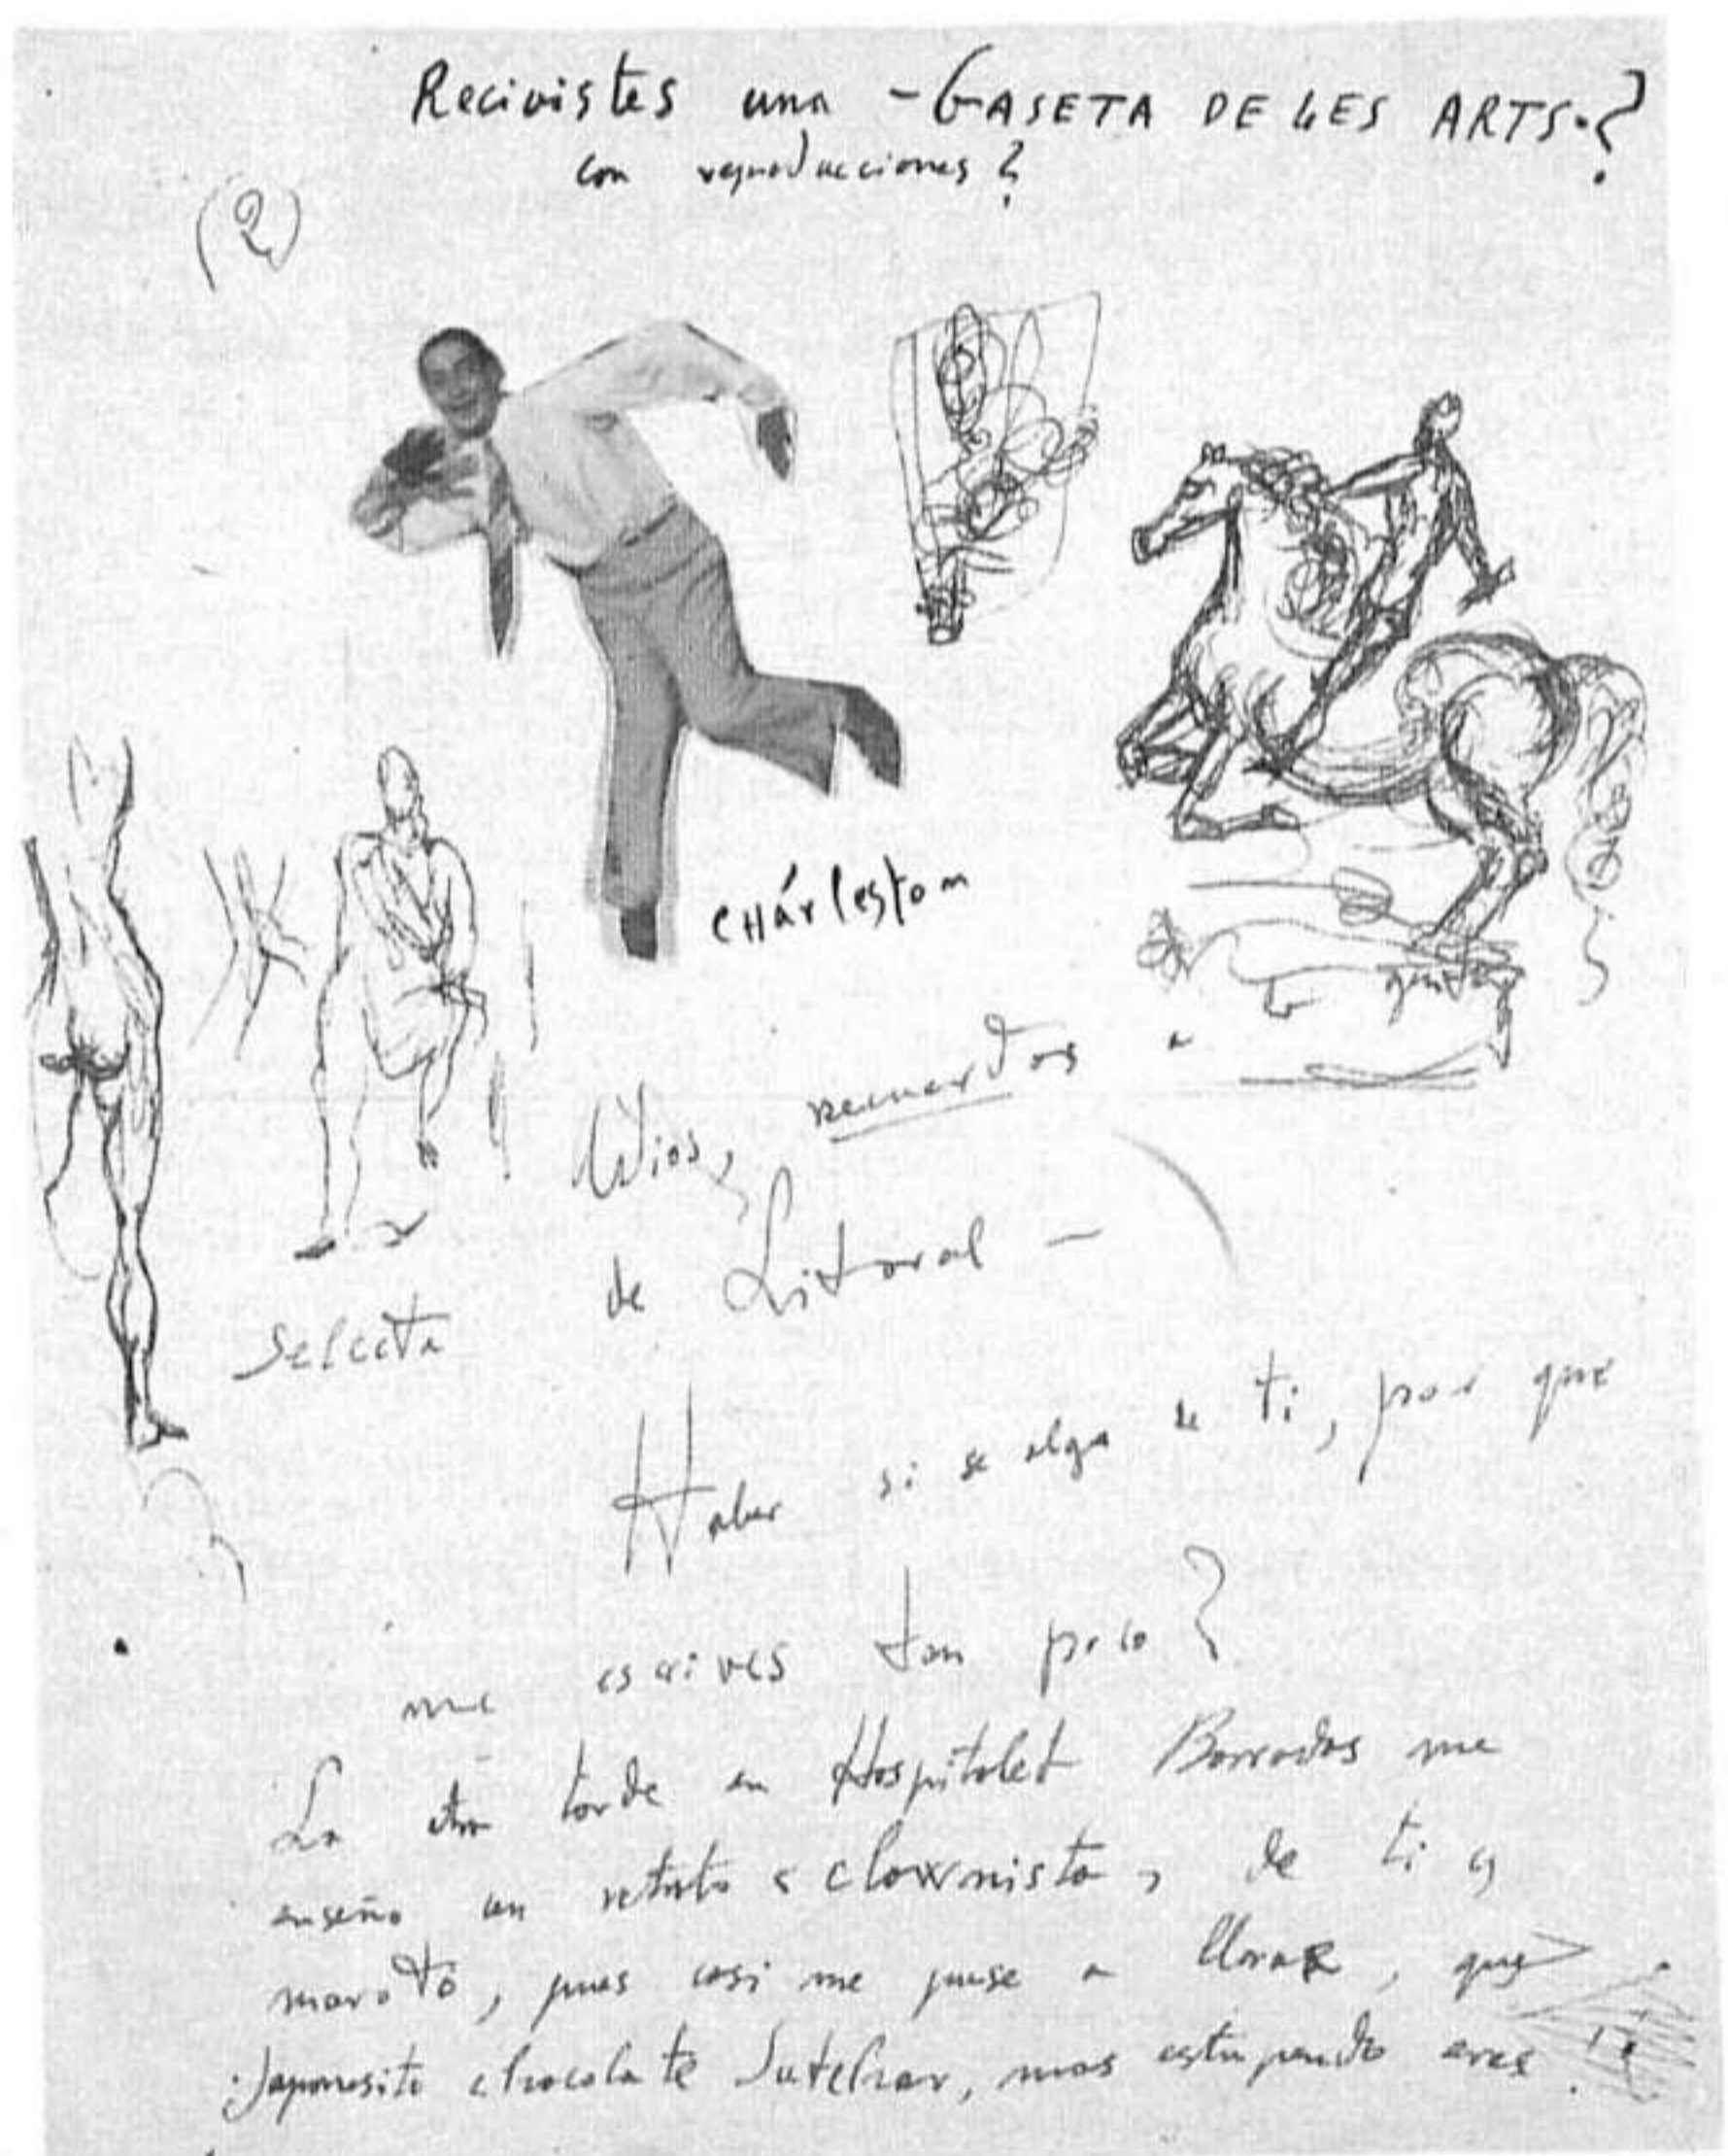 Recivistes una - GASETA DE LES ARTS-?
con reproducciones?
(2)
CHárleston
Adios, recuerdos a
gente
de Litoral —
Selecta
Haber si se algo de ti, por que
me escrives tan poco?
La otra tarde en Hospitalet Barradas me
enseño un retrato "clownista" de ti y
maroto, pues casi me puse a lloraR, que
Japonesito chocolate Sutchar, mas estupendo eres!